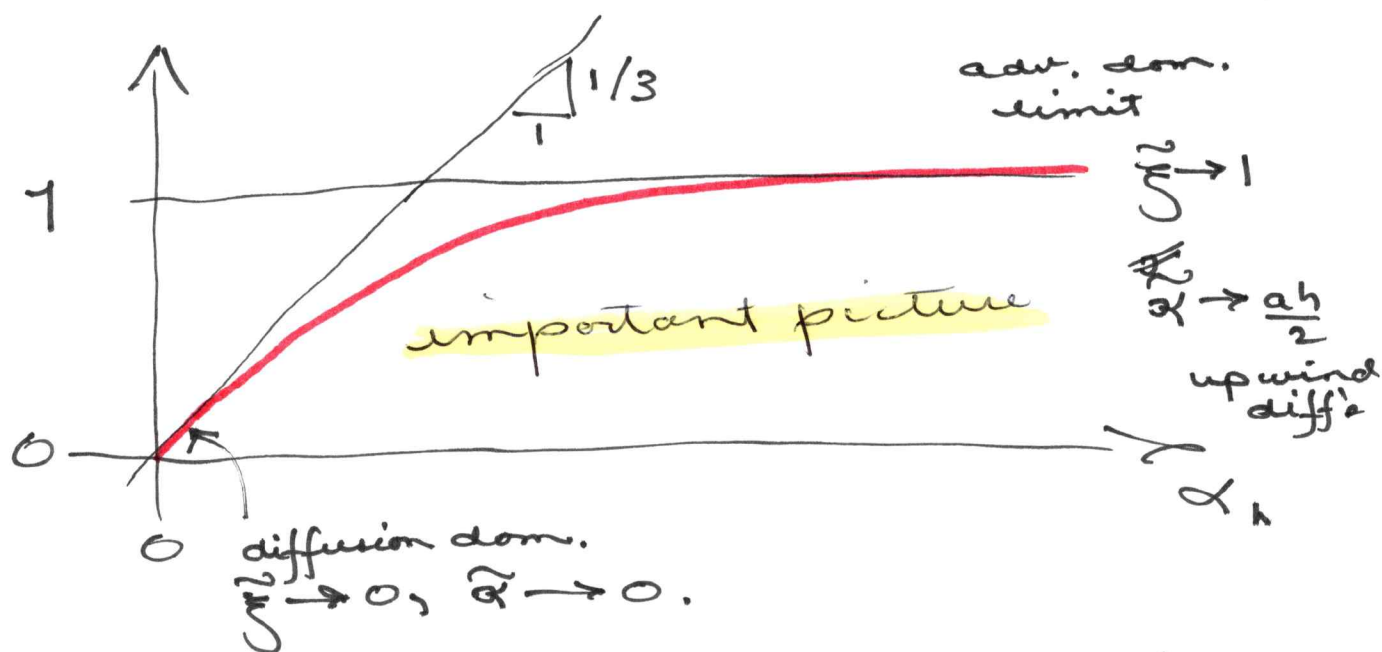 1/3
1
adv. dom.
limit
ξ̃ → 1
1
κ̃ → ah/2
important picture
upwind
diff's
0
α h
0
diffusion dom.
ξ̃ → 0, κ̃ → 0.